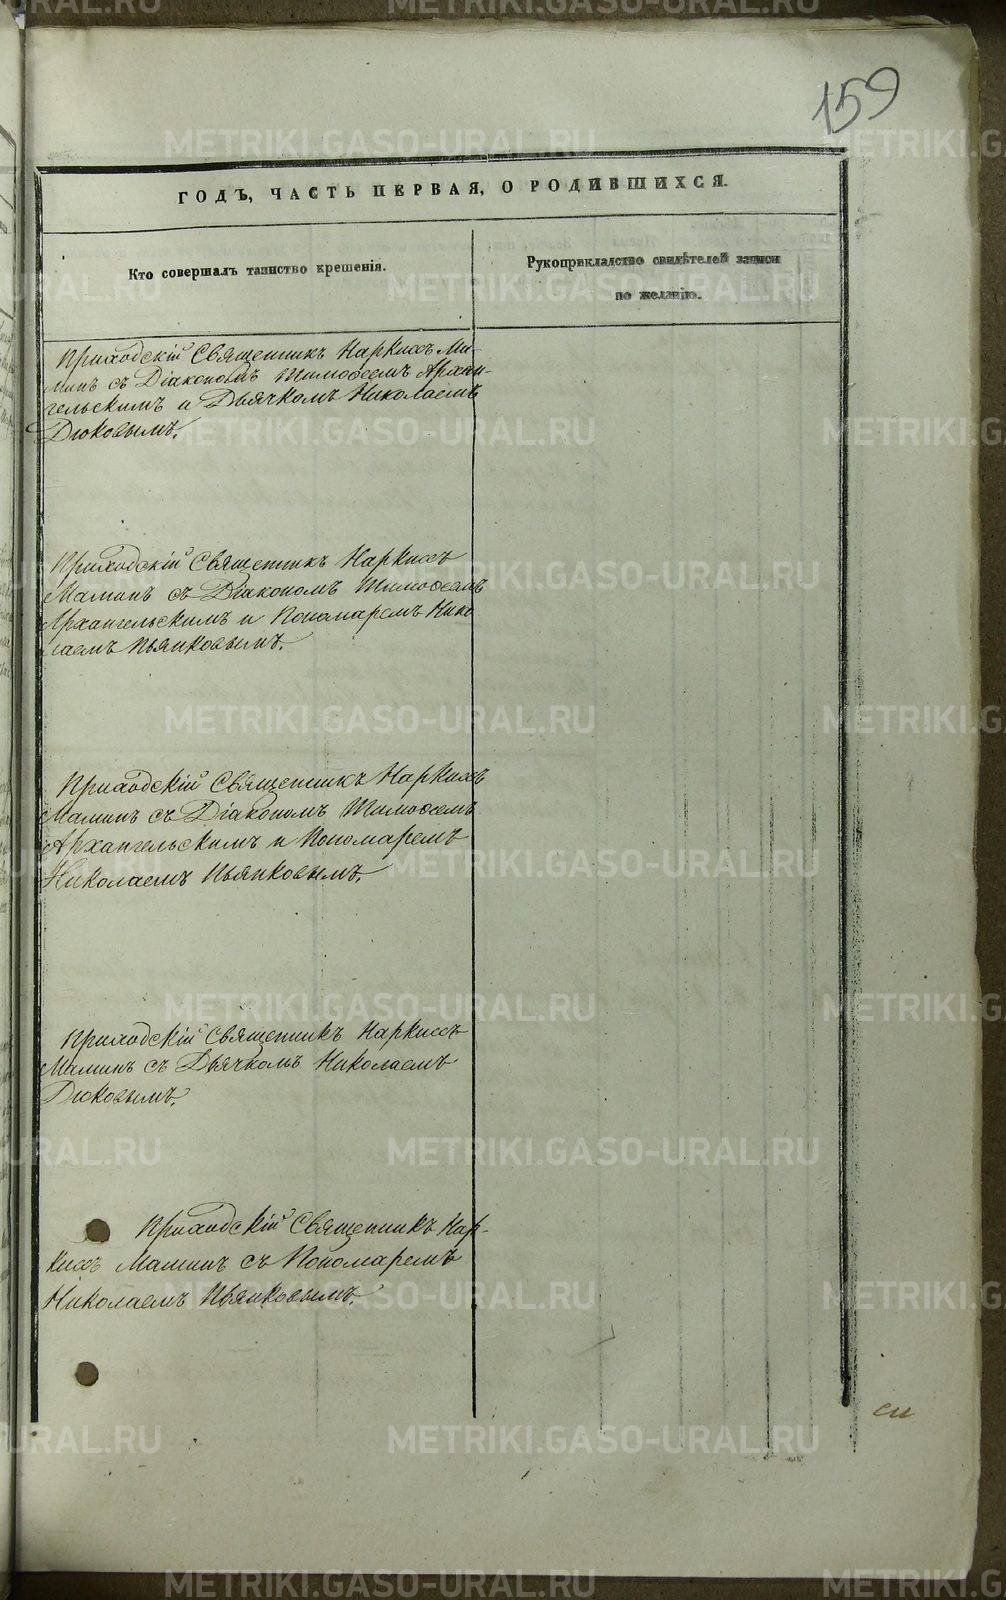 159
ГОДЪ, ЧАСТЬ ПЕРВАЯ, О РОДИВШИХСЯ.
Кто совершалъ таинство крещенія.
Рукоприкладство свидѣтелей записи
по желанію.
Приходскій Священникъ Наркиссъ Ма-
минъ съ Діакономъ Тимоѳеемъ Архан-
гельскимъ и Дьячкомъ Николаемъ
Дюковымъ.
Приходскій Священникъ Наркиссъ
Маминъ съ Діакономъ Тимоѳеемъ
Архангельскимъ и Пономаремъ Нико
лаемъ Пьянковымъ.
Приходскій Священникъ Наркиссъ
Маминъ съ Діакономъ Тимоѳеемъ
Архангельскимъ и Пономаремъ
Николаемъ Пьянковымъ.
Приходскій Священникъ Наркиссъ
Маминъ съ Дьячкомъ Николаемъ
Дюковымъ.
Приходскій Священникъ Нар-
киссъ Маминъ съ Пономаремъ
Николаемъ Пьянковымъ.
METRIKI.GASO-URAL.RU